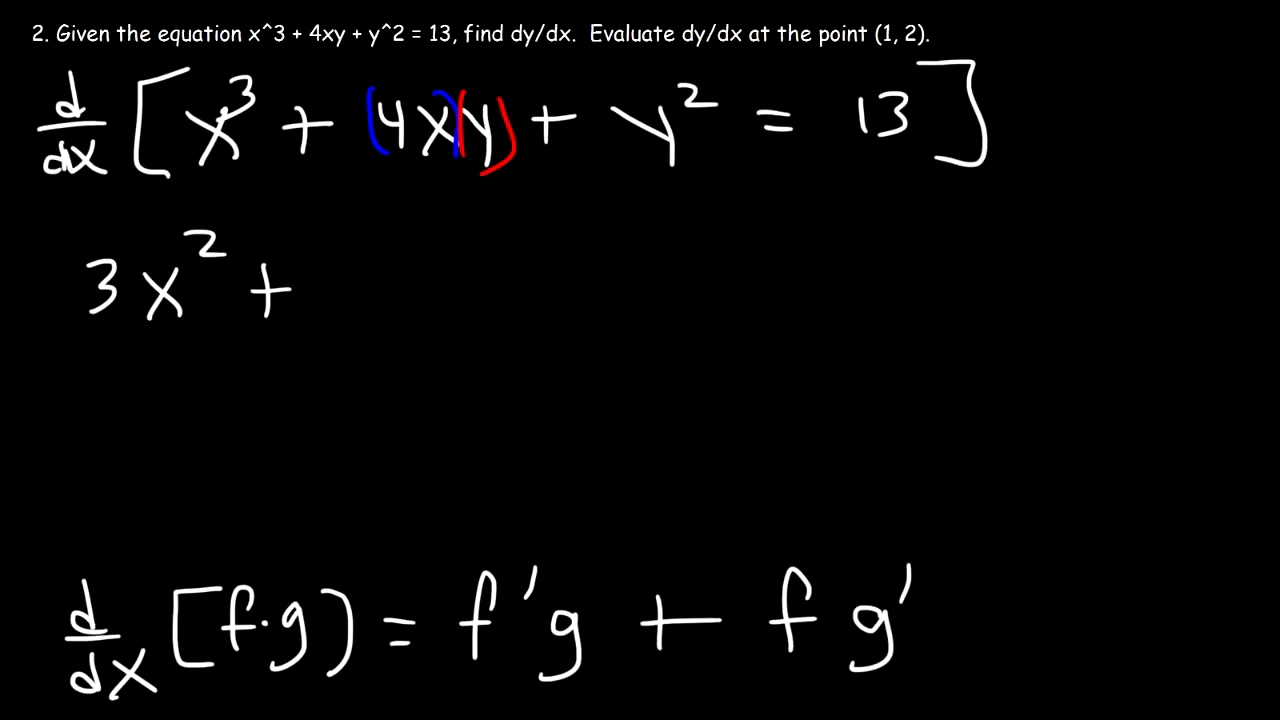 2. Given the equation x^3 + 4xy + y^2 = 13, find dy/dx. Evaluate dy/dx at the point (1, 2).
d/dx [x³ + (4x)(y) + y² = 13]
3x² +
d/dx [f·g) = f'g + fg'